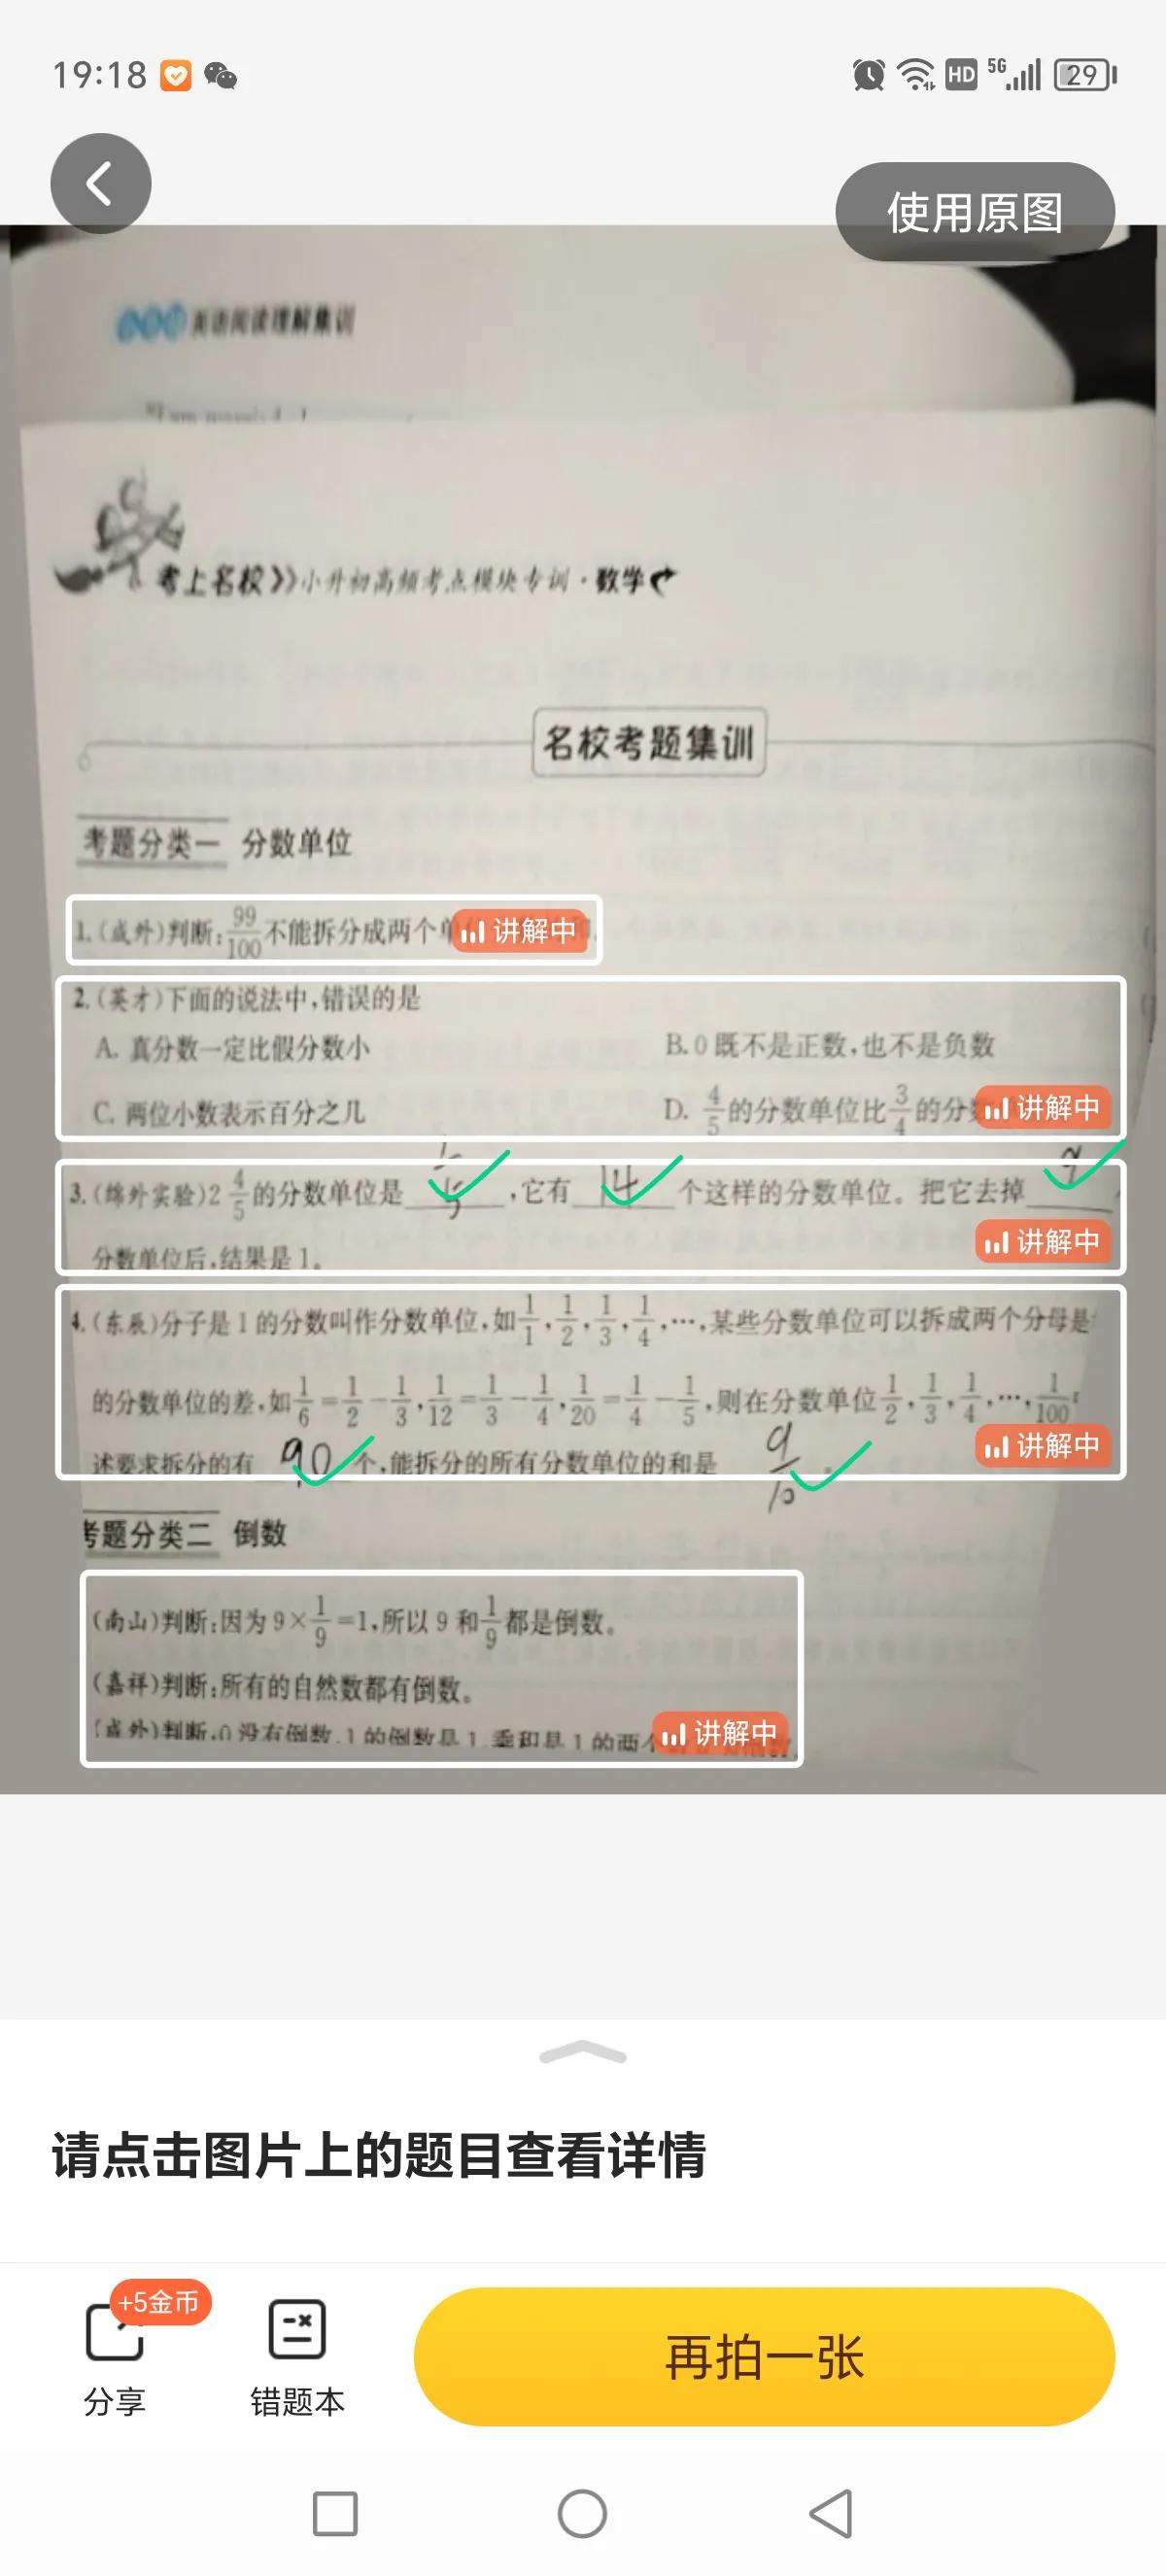 19:18
HD 5G 29
使用原图
英语阅读理解集训
考上名校》小升初高频考点模块专训·数学
名校考题集训
考题分类一 分数单位
1.(成外)判断:99/100不能拆分成两个单 讲解中
2.(英才)下面的说法中,错误的是
A. 真分数一定比假分数小 B. 0既不是正数,也不是负数
C. 两位小数表示百分之几 D. 4/5的分数单位比3/4的分 讲解中
3.(绵外实验)2 4/5的分数单位是 1/5 ,它有 14 个这样的分数单位。把它去掉 9
分数单位后,结果是1。 讲解中
4.(东辰)分子是1的分数叫作分数单位,如1/1,1/2,1/3,1/4,…,某些分数单位可以拆成两个分母是
的分数单位的差,如1/6=1/2-1/3,1/12=1/3-1/4,1/20=1/4-1/5,则在分数单位1/2,1/3,1/4,…,1/100
述要求拆分的有 90 个,能拆分的所有分数单位的和是 9/10 . 讲解中
考题分类二 倒数
(南山)判断:因为9×1/9=1,所以9和1/9都是倒数。
(嘉祥)判断:所有的自然数都有倒数。
(成外)判断:0没有倒数,1的倒数是1,乘积是1的两个 讲解中
请点击图片上的题目查看详情
+5金币
分享 错题本 再拍一张